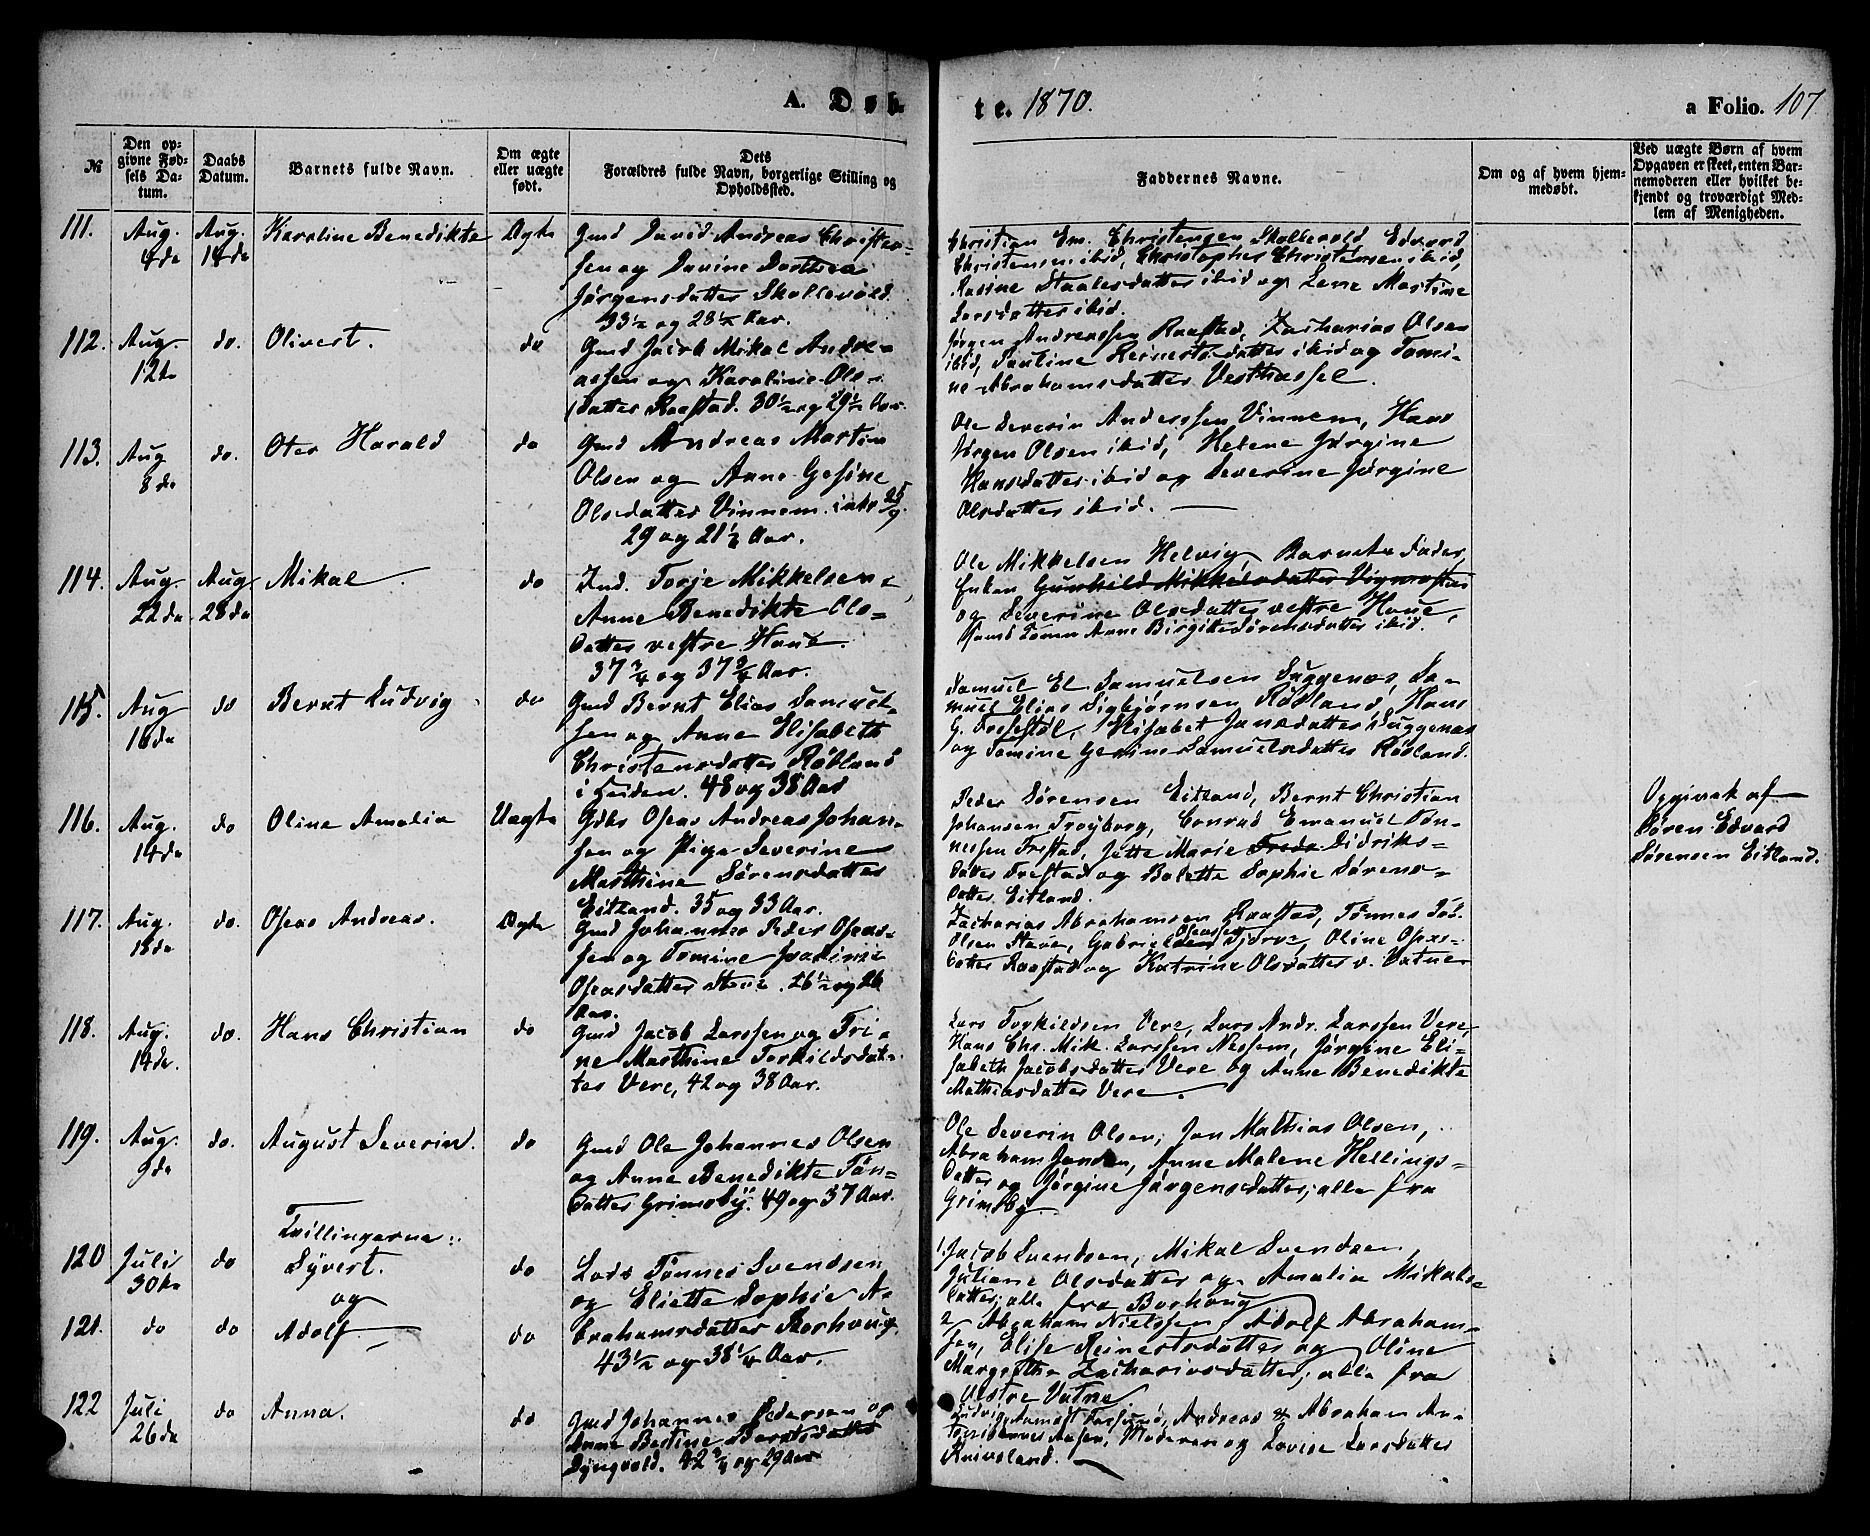 A. Døb-
te. 1870.
a Folio. 107
№
Den op-
givne Fød-
sels Da-
tum.
Daabs
Datum.
Barnets fulde Navn.
Om ægte
eller uægte
født.
Dets
Forældres fulde Navn, borgerlige Stilling og
Opholdssted.
Faddernes Navne.
Om og af hvem hjem-
medøbt.
Ved uægte Børn af hvem
Opgaven er skeet, enten Bar-
nemoderen eller hvilket be-
kjendt og troværdigt Med-
lem af Menigheden.
111.
Aug.
4de
Aug.
14de
Karoline Benedikte
Ægte
Gmd David Andreas Christen-
sen og Davine Dorthea
Jørgensdatter Skollevold.
33½ og 28½ Aar.
Christian Em. Christensen Skollevold, Edvard
Christensen ibid, Christopher Christensen ibid,
Rasine Staalesdatter ibid og Lene Martine
Larsdatter ibid.
112.
Aug.
12te
do.
Olivert.
do
Gmd Jacob Mikal Andre-
assen og Karoline Ols-
datter Raastad. 30½ og 29½ Aar.
Jørgen Andreassen Raastad, Zacharias Olsen
ibid, Pauline Reinertsdatter ibid og Tomi-
ne Abrahamsdatter Vesthassel.
113.
Aug
8de
do.
Oter Harald
do
Gmd Andreas Martin
Olsen og Anne Gesine
Olsdatter Vinnem.
29 og 21½ Aar.
Ole Severin Anderssen Vinnem, Hans
Jørgen Olsen ibid, Helene Jørgine
Hansdatter ibid og Severine Jørgine
Olsdatter ibid.
114.
Aug.
22de
Aug
28de
Mikal
do
Ind. Torje Mikkelsen,
Anne Benedikte Ols-
datter vestre Haue.
37¾ og 37¾ Aar.
Ole Mikkelsen Helvig, Barnets Fader,
Enken Gunhild Mikkelsdatter
og Severine Olsdatter vestre Haue,
Anne Birgitte Sørensdatter ibid.
115.
Aug
16de
do
Bernt Ludvig
do
Gmd Bernt Elias Samuel-
sen og Anne Elisabeth
Christensdatter Rødland
i Leiden. 48 og 38 Aar
Samuel El. Samuelsen Duggenæs, Sa-
muel Elias Sigbjørnsen Rødland, Hans
G. Tressestøl, Elisabet Jansdatter Duggenæs
og Tomine Gesine Samuelsdatter Rødland.
116.
Aug.
14de
do
Oline Amalia
Uægte
Gdbr Oseas Andreas Johan-
sen og Pige Severine
Marthine Sørensdatter
Eitland. 35 og 33 Aar.
Peder Sørensen Eitland, Bernt Christian
Johansen Trøyborg, Conrad Emanuel Tøn-
nessen Frestad, Jette Marie Didriks-
datter Frestad og Bolette Sophie Sørens-
datter Eitland.
Opgivet af
Søren Edvard
Sørensen Eitland.
117.
Aug.
13de
do.
Oseas Andreas.
Ægte
Gmd Johannes Peder Oseas-
sen og Tomine Joakime
Oseasdatter Staue. 26½ og 26
Aar.
Zacharias Abrahamsen Raastad, Tønnes Tob.
Olsen Staue, Gabriel Oseassen Tjørve, Oline Oseas-
datter Raastad og Katrine Olsdatter v. Vatne.
118.
Aug.
14de.
do.
Hans Christian
do
Gmd Jacob Larssen og Tri-
ne Marthine Torkildsdat-
ter Vere, 42 og 38 Aar.
Lars Torkildsen Vere, Lars Andr. Larssen Vere,
Hans Chr. Mik. Larssen Nessem, Jørgine Eli-
sabeth Jacobsdatter Vere og Anne Benedikte
Mathiasdatter Vere.
119.
Aug.
9de
do.
August Severin.
do
Gmd Ole Johannes Olsen
og Anne Benedikte Tøn-
datter Grimsby. 49 og 37 Aar.
Ole Severin Olsen, Jan Mathias Olsen,
Abraham Jansen, Anne Malene Hellings-
datter og Jørgine Jørgensdatter, alle fra
Grimsby.
Tvillingerne:
120
Juli
30te
do
Syvert.
og
do
Lods Tønnes Svendsen
og Eliette Sophie A-
brahamsdatter Borhoug.
43½ og 38¼ Aar.
1. Jacob Svendsen, Mikal Svendsen,
Juliane Olsdatter og Amalia Mikals-
datter, alle fra Borhoug
121.
do
do
Adolf
do
2. Abraham Nielssen, Adolf Abraham-
sen, Elise Reinertsdatter og Oline
Margrethe Zachariasdatter, alle fra
Vestre Vatne
122
Juli
26de
do
Anna.
do
Gmd Johannes Pedersen og
Anne Bertine Berntsdatter
Dyngvold. 42¾ og 29 Aar
Ludvig Andreas & Abraham An-
Moderen og Lovise Larsdatter
Knivsland.